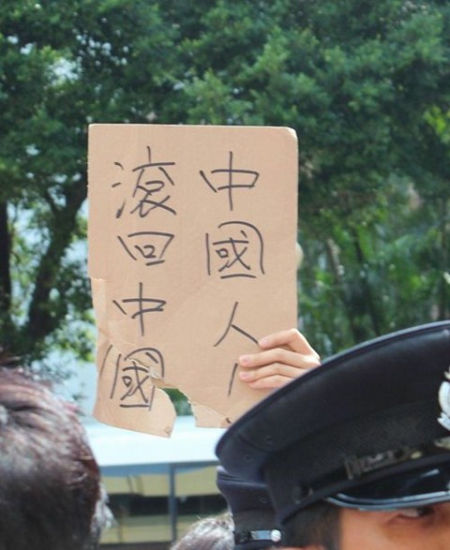 中國人
滾回中國